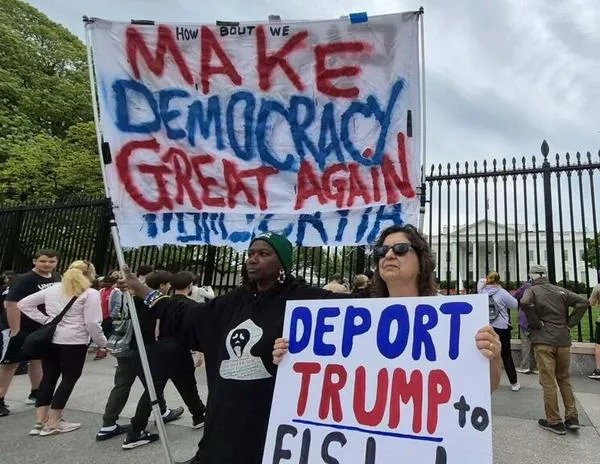 HOW BOUT WE
MAKE
DEMOCRACY
GREAT AGAIN
DEPORT
TRUMP to